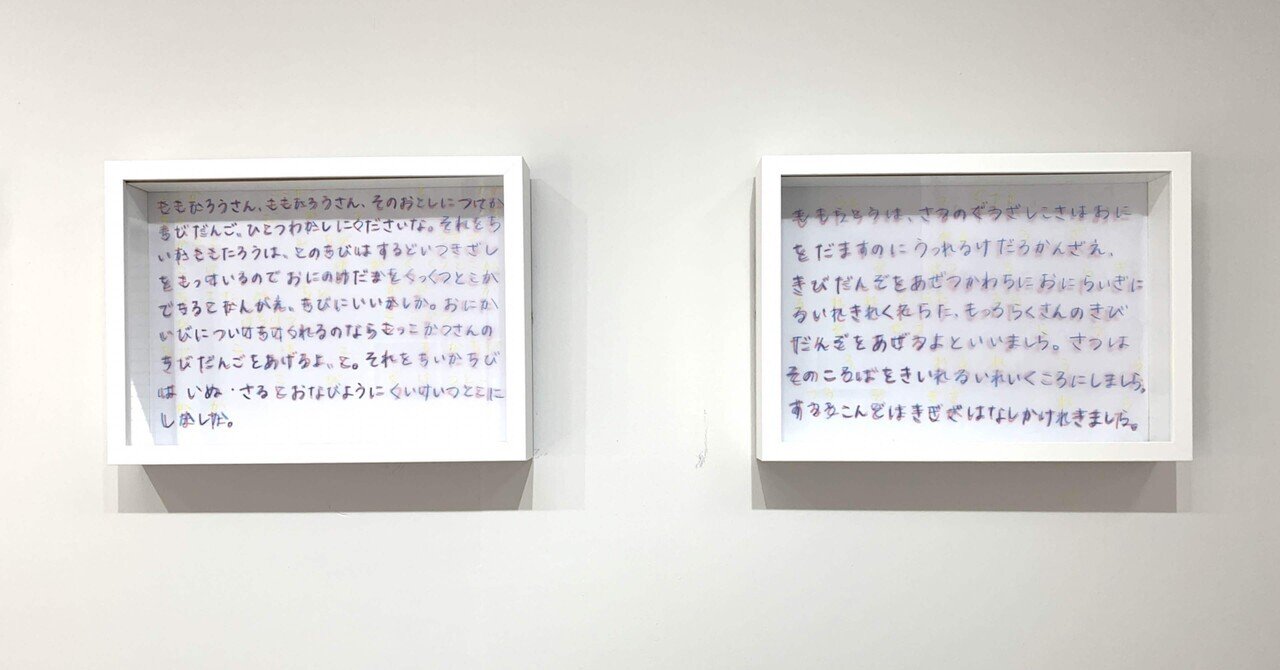 ももたろうさん、ももたろうさん、そのおとしにつけか
ちびだんご、ひとつわかしにくださいな。それをち
いわももたろうは、とのちびはするどいつきざし
をもっけいるのでおにのけだまをくっくつとこか
できるとなんがえ、ちびにいいかしか。おにか
いびについけちけくれるのならもっこかつさんの
ちびだんごをあげるよ、と。それをちいかちび
は いぬ・さるとおなびようにくいけいつとこに
しかした。
ももらろうは、さるのぞうざしこさはおに
をだますのにうっれるけだろかんざえ、
きびだんぞをあぜつかわちにおにらいぎに
るいれきれくれらた、もっろらくさんのきび
だんぞをあげるよといいましら。さつは
そのころばをきいれるいれいくころにしましら。
するろこんどはきぎがはなしかけれきましら。